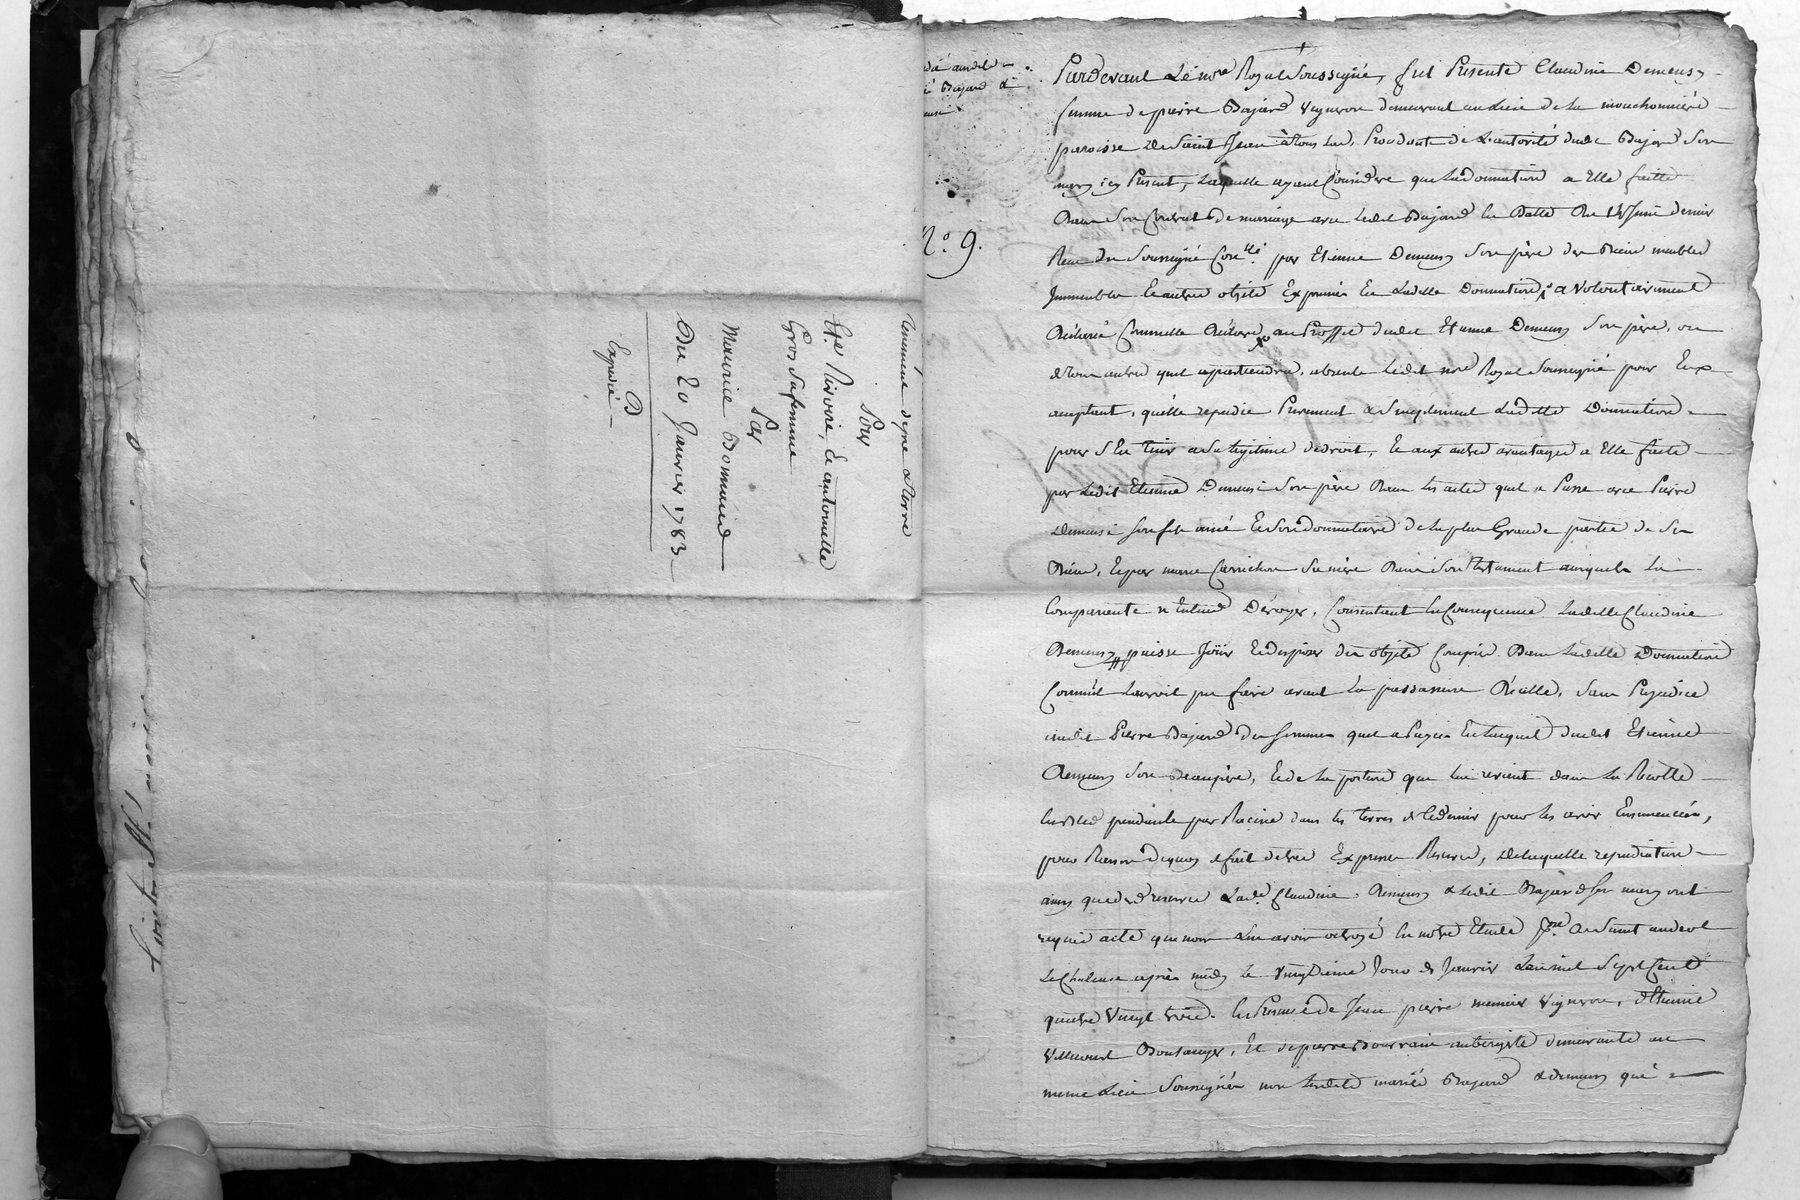 Pour
Etne Rivoire, & antoinette
Gros Sa femme
Par
Maurice Bonnand
Du 20 Janvier 1783
Expedié
N.° 9.
Pardevant Le nore Royal Soussigné, fut Presente Claudine Demeusy
femme de pierre Bajard vigneron demeurant au Lieu de La mouchonnière
paroisse de Saint Jean à Tous Las, Procedant de L'autorité dudt Bajard Son
mary icy Present, Laquelle ayant Consideré que La donnation a Elle faitte
Dans Son Contrat de mariage avec Ledit Bajard en Datte du Juin dernier
Reçu du Soussigné par Etienne Demeusy Son père des Biens meubles
Immeubles & autres objets Exprimés En Laditte Donnation, a volontairement
Déclaré Comme elle déclare au Proffit dudit Etienne Demeusy Son père, ou
& tous autres quil apartiendra, absents Ledit nore Royal Soussigné pour Eux
acceptant, quelle repudie Purement & Simplement Laditte Donnation
pour S'En tenir a Sa legitime de droit, & aux autres avantages a Elle faits
par Ledit Etienne Demeusi Son père Dans les actes quil a Passé avec Pierre
Demeusi Son fils ainé & Son donnataire de La plus Grande partie de Ses
Biens, & par marie Carrichon Sa mère Dans Son Testament auxquels La
Comparante n'Entend Déroger, Consentant En Consequence Laditte Claudine
Demeusy puisse Joüir & disposer des objets Compris Dans Laditte Donnation
Comme il auroit pu faire avant La passation D'icelle, Sans Prejudice
audit Pierre Bajard des Sommes quil a Payé En Lacquit dudit Etienne
Demeusy Son Beaupère, & de La portion qui lui revient dans La Recolte
En Bled pendante par Racine dans les terres de Ce dernier pour les avoir Ensemencées,
pour Raison de quoy il fait de tres Expresses Reserves, de Laquelle repudiation
ainsy que des reserves Lade Claudine Demeusy & Ledit Bajard Son mary ont
requis acte que nous Leur avons octroyé En notre Etude a Saint andeol
Le Chateau après midy Le vingtieme Jour de Janvier L'an mil Sept Cent
quatre Vingt trois. En Presence de Jean pierre meunier vigneron, d'Etienne
Villecourt Boulanger, & de pierre Bourrain aubergiste demeurants au
meme Lieu Soussignés non Lesdits mariés Bajard & Demeusy qui